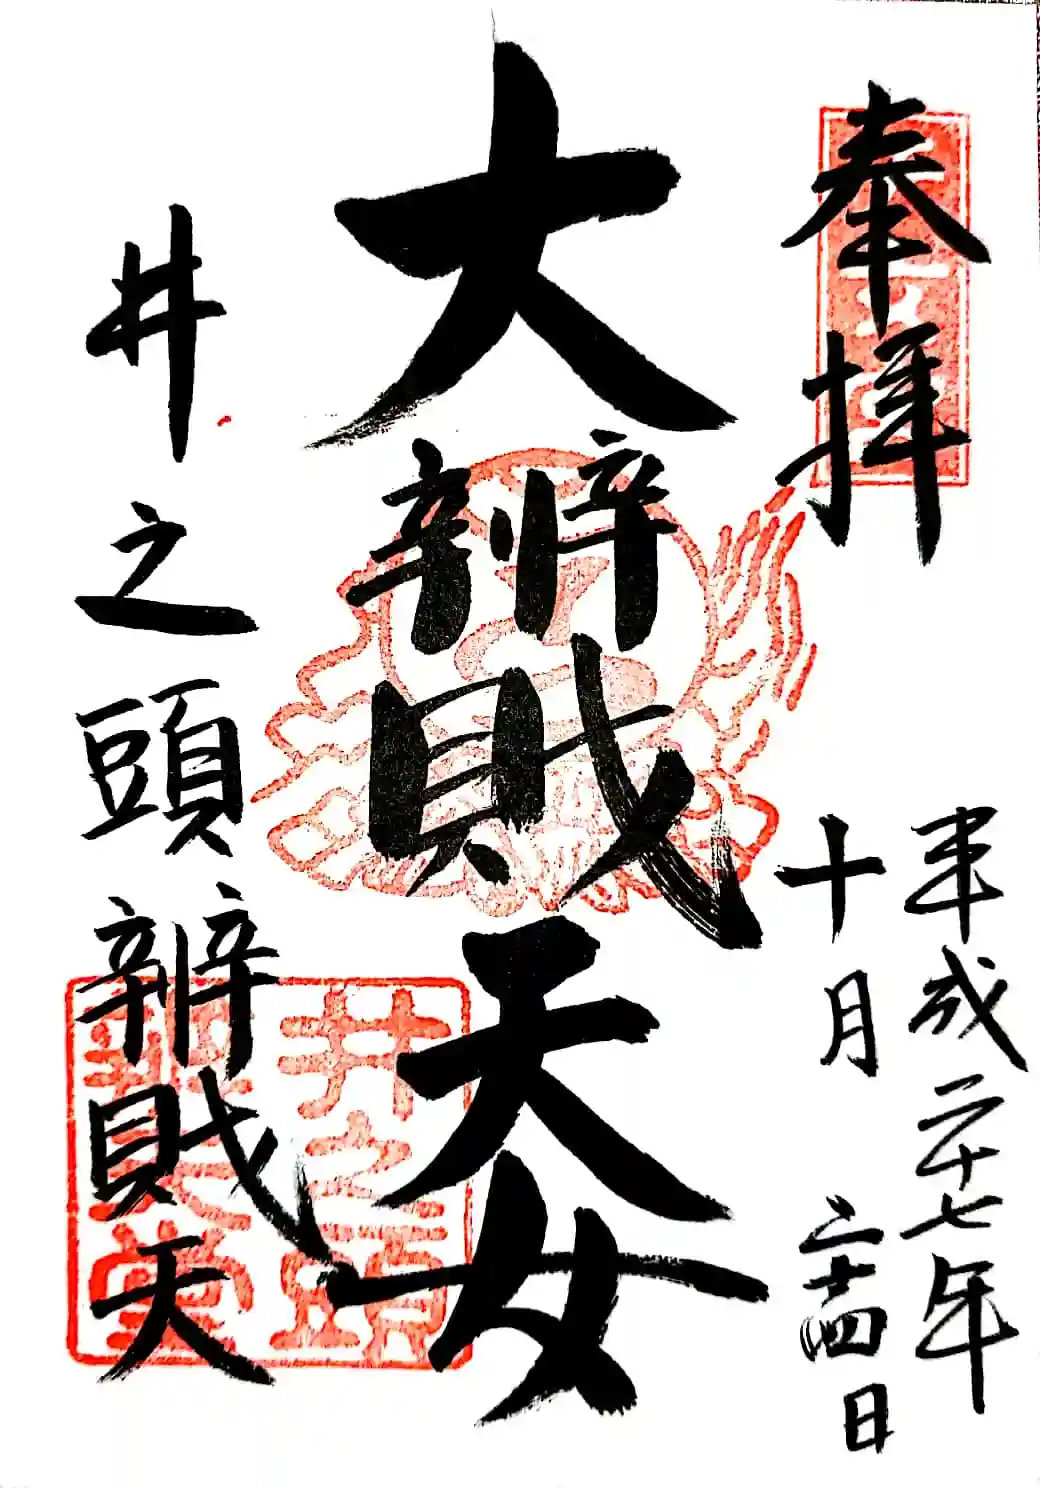 奉拝
平成二十七年
十月二十四日
大辨財天女
井之頭辨財天
井之頭